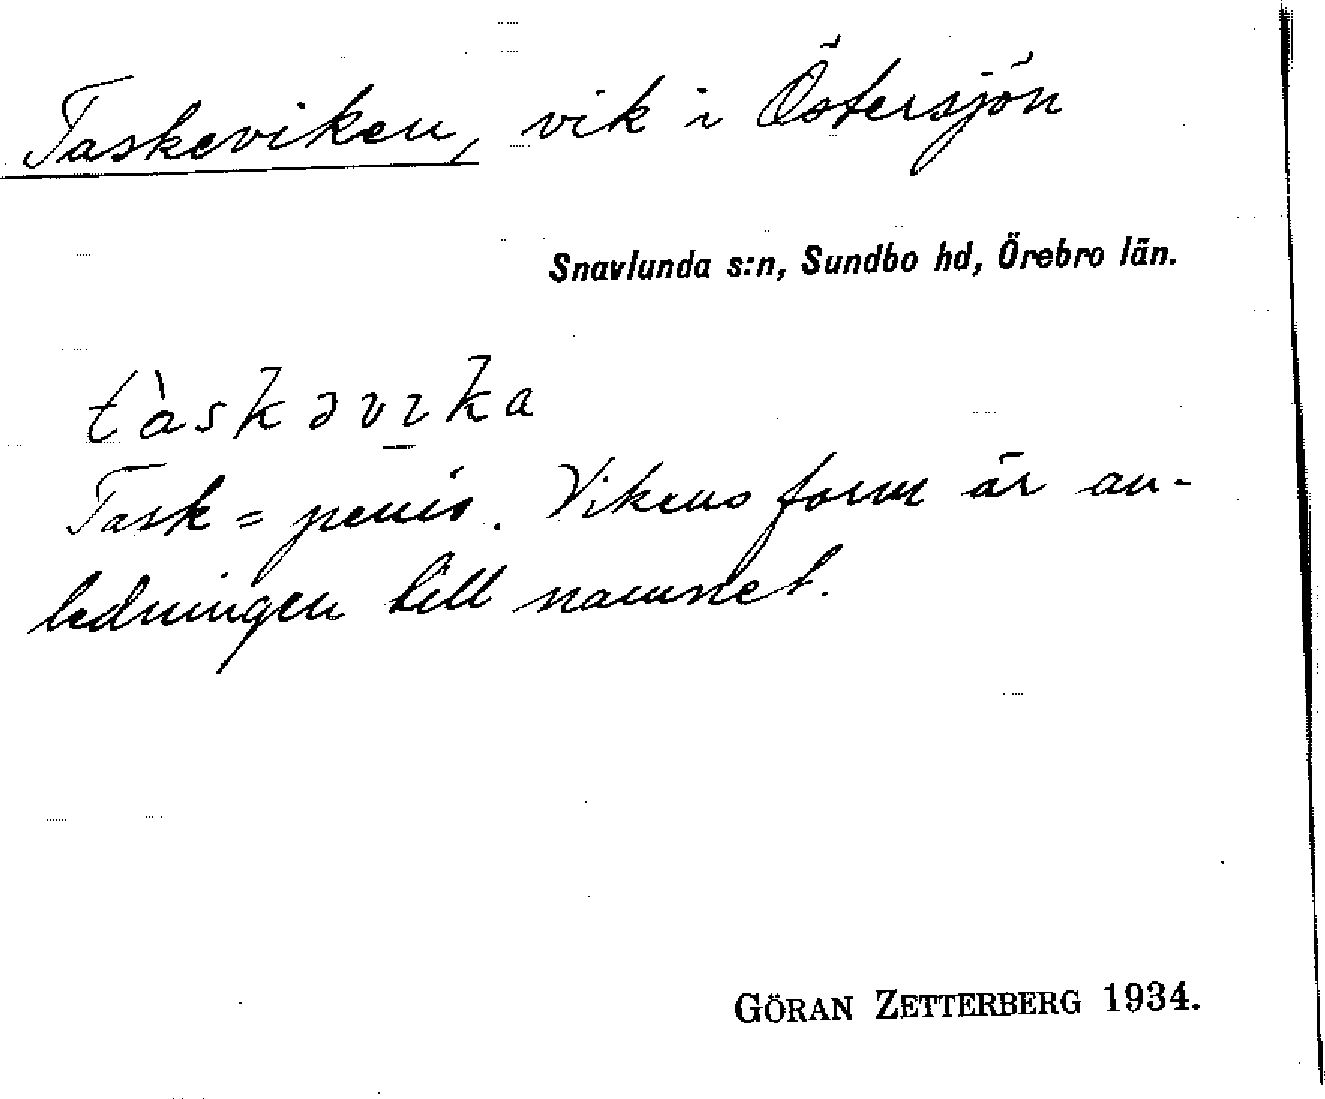 Taskeviken, vik i Östersjön
Snavlunda s:n, Sundbo hd, Örebro län.
tàskəvıka
Task = penis. Vikens form är an-
ledningen till namnet.
GÖRAN ZETTERBERG 1934.